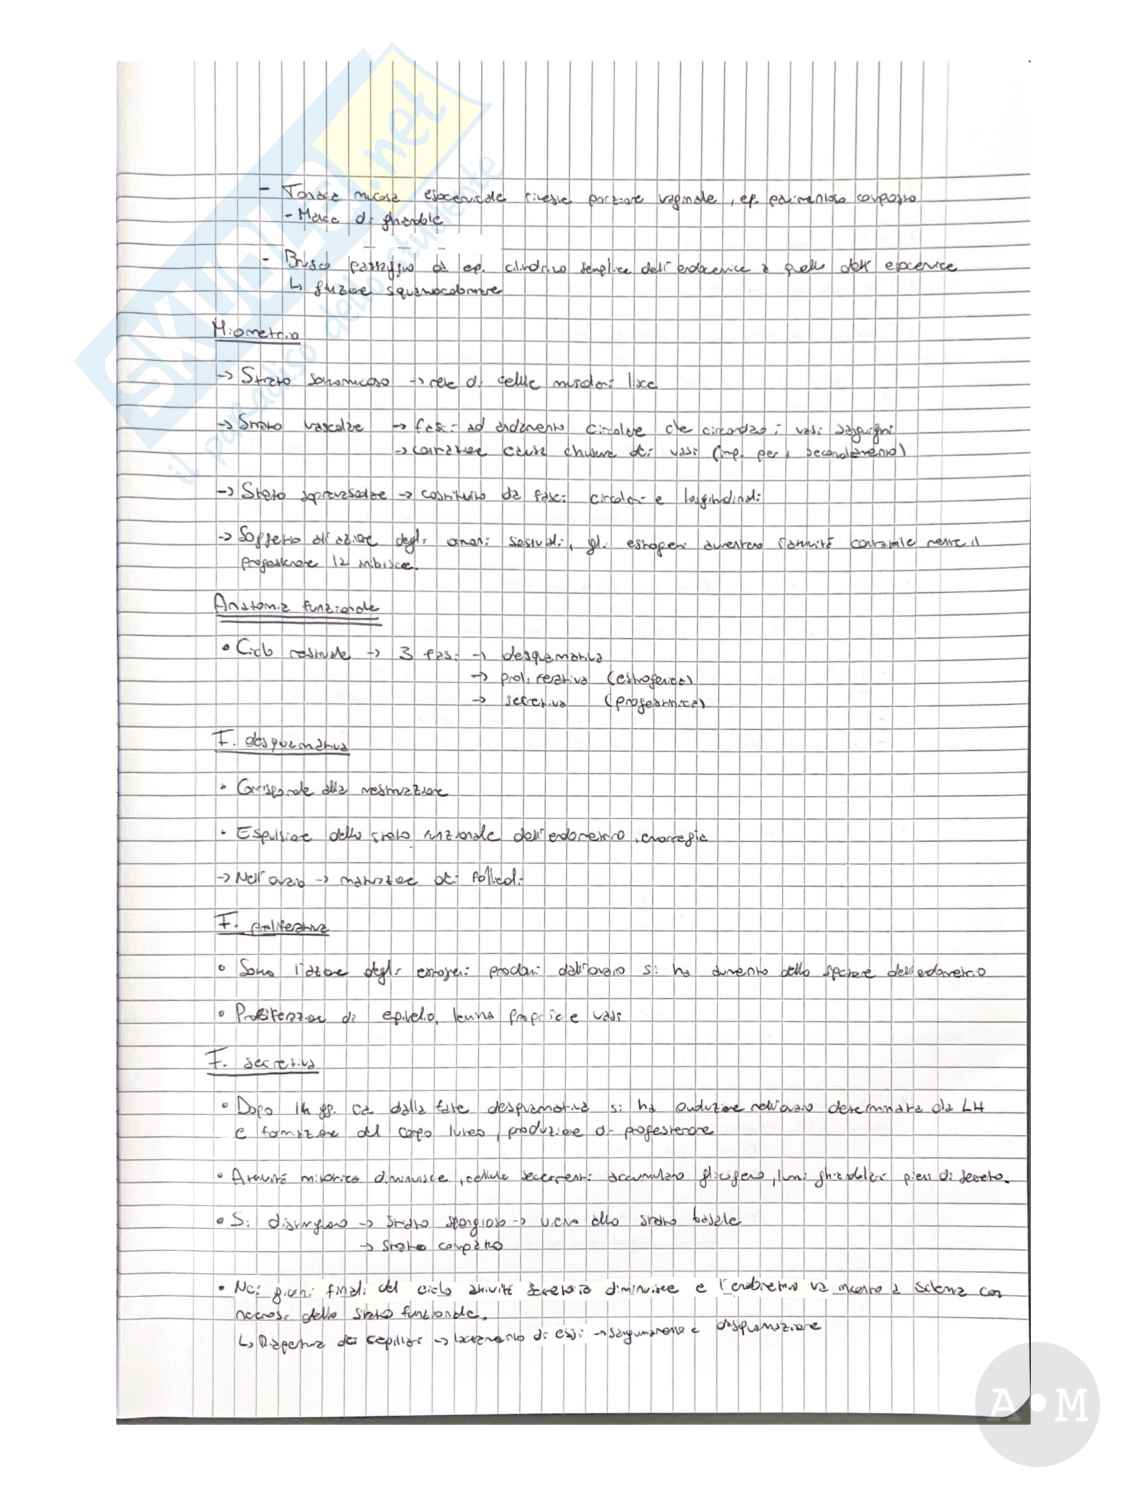 - Tonaca mucosa esocervicale riveste porzione vaginale, ep. pavimentoso composto
- Manca di ghiandole
- Brusco passaggio da ep. cilindrico semplice dell'endocervice a quello dell'esocervice
↳ giunzione squamocolonnare
Miometrio
→ Strato sottomucoso → rete di cellule muscolari lisce
→ Strato vascolare → fasci ad andamento circolare che circondano i vasi sanguigni
→ contrazione causa chiusura dei vasi (imp. per il secondamento)
→ Strato sopravascolare → costituito da fasci circolari e longitudinali
→ Soggetto all'azione degli ormoni sessuali, gli estrogeni aumentano l'attività contrattile mentre il
progesterone la inibisce.
Anatomia funzionale
• Ciclo mestruale → 3 fasi → desquamativa
→ proliferativa (estrogenica)
→ secretiva (progestinica)
F. desquamativa
• Corrisponde alla mestruazione
• Espulsione dello strato funzionale dell'endometrio, emorragia
→ Nell'ovaio → maturazione dei follicoli
F. proliferativa
• Sotto l'azione degli estrogeni prodotti dall'ovaio si ha aumento dello spessore dell'endometrio
• Proliferazione di epitelio, lamina propria e vasi
F. secretiva
• Dopo 14 gg. ca dalla fase desquamativa si ha ovulazione nell'ovaio determinata da LH
e formazione del corpo luteo, produzione di progesterone
• Attività mitotica diminuisce, cellule secernenti accumulano glicogeno, lumi ghiandolari pieni di secreto.
• Si distinguono → Strato spongioso → vicino allo strato basale
→ Strato compatto
• Nei giorni finali del ciclo attività secretoria diminuisce e l'endometrio va incontro a ischemia con
necrosi dello strato funzionale.
↳ Riapertura dei capillari → laceramento di essi → sanguinamento e desquamazione
SKUOLA.net
il paradiso dello studente
A•M